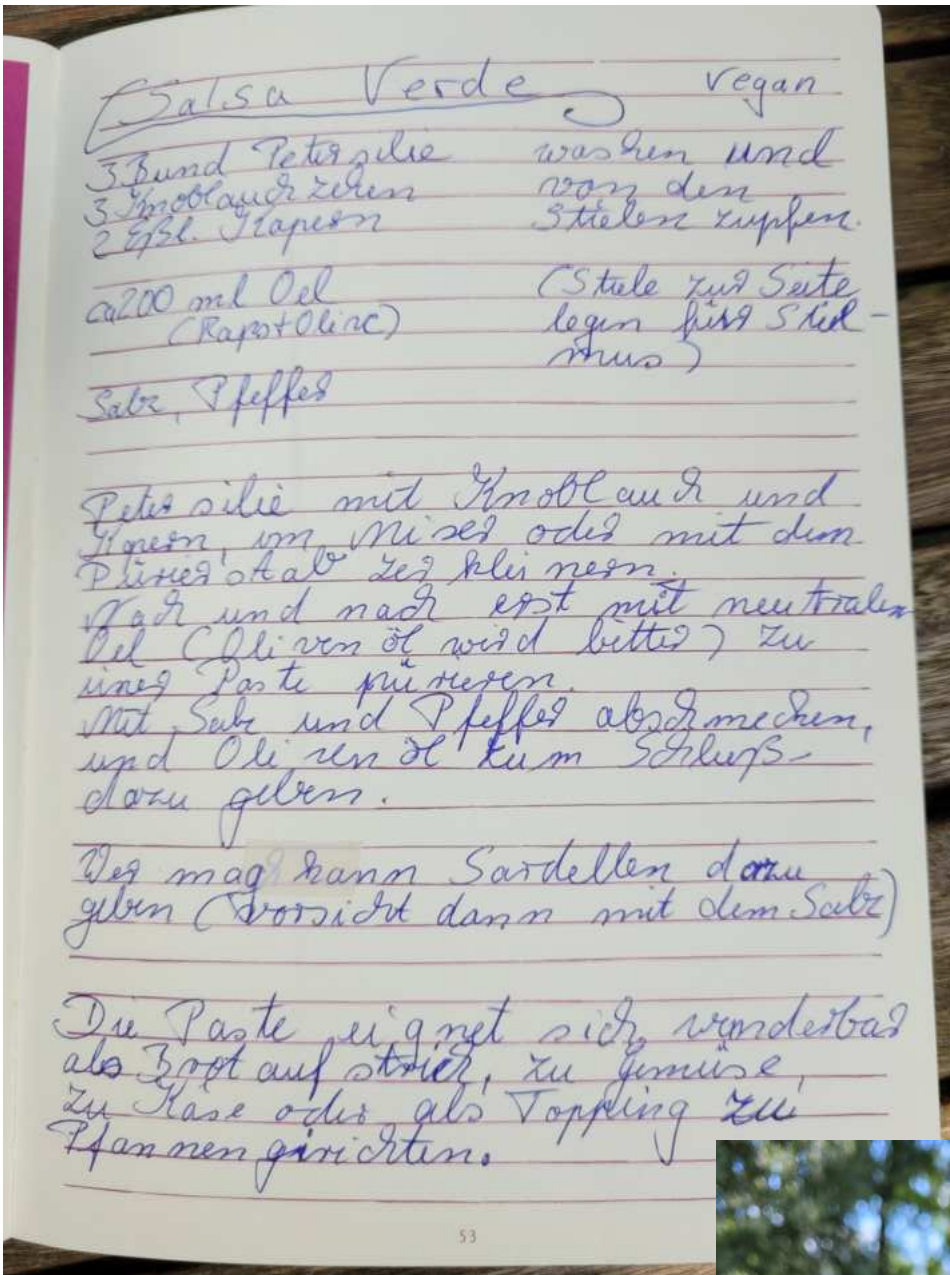 Salsa Verde vegan
3 Bund Petersilie waschen und
3 Knoblauchzehen von den
2 Eßl. Kapern Stielen zupfen.
ca 200 ml Oel (Stiele zur Seite
(Raps+Olive) legen fürs Stiel-
mus)
Salz, Pfeffer
Petersilie mit Knoblauch und
Kapern, im Mixer oder mit dem
Pürierstab zerkleinern.
Nach und nach erst mit neutralem
Oel (Olivenöl wird bitter) zu
einer Paste pürieren.
Mit Salz und Pfeffer abschmecken,
und Olivenöl zum Schluß
dazu geben.
Wer mag kann Sardellen dazu
geben (Vorsicht dann mit dem Salz)
Die Paste eignet sich wunderbar
als Brotaufstrich, zu Gemüse,
zu Käse oder als Topping zu
Pfannengerichten.
53